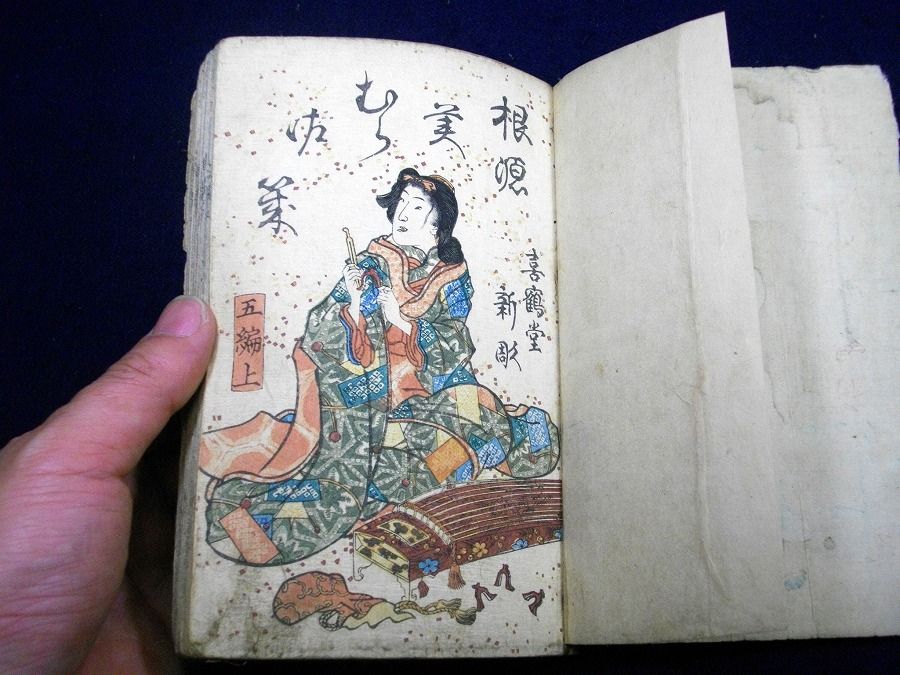 根源
美
むら
佐
喜鶴堂
新彫
五編上